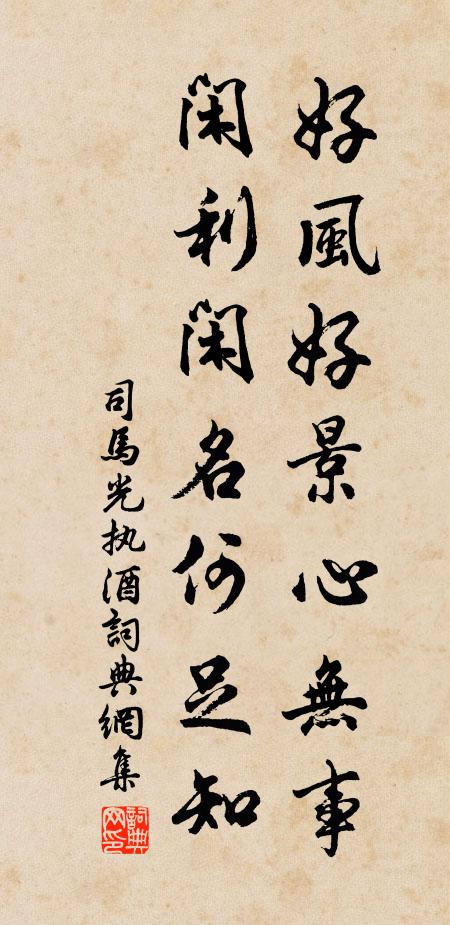 好風好景心無事
閑利閑名何足知
司馬光执酒詞典網集
詞典网印